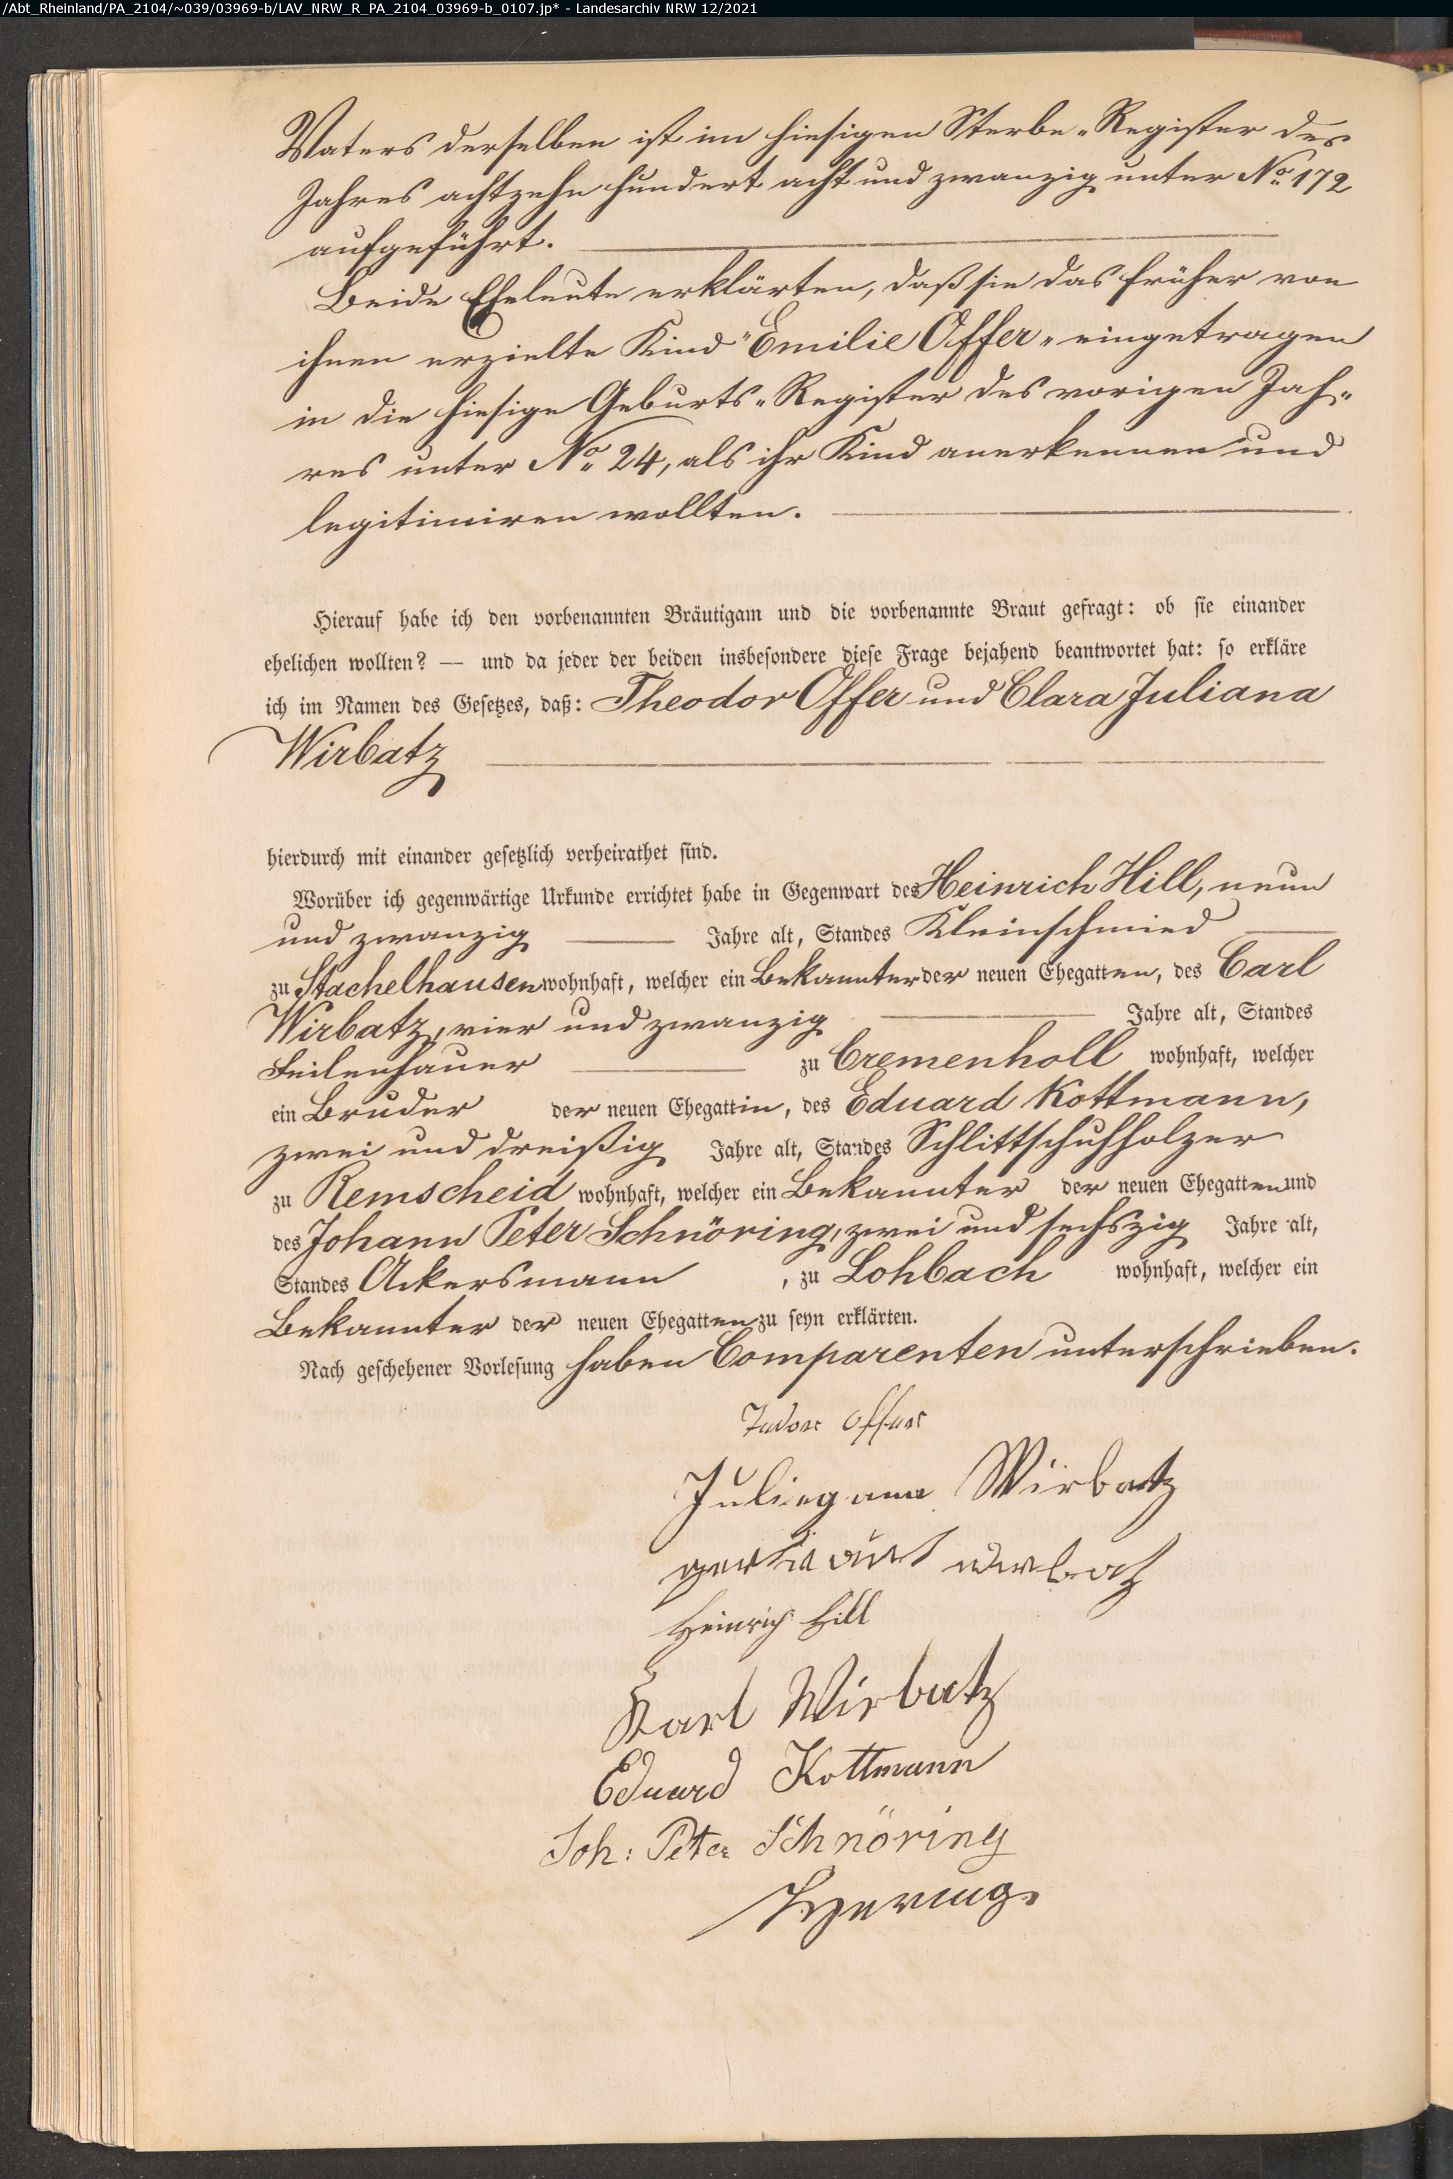 /Abt_Rheinland/PA_2104/~039/03969-b/LAV_NRW_R_PA_2104_03969-b_0107.jp* - Landesarchiv NRW 12/2021
Vaters derselben ist im hiesigen Sterbe-Register des
Jahres achtzehn hundert acht und zwanzig unter No 172
aufgeführt.
Beide Eheleute erklärten, daß sie das früher von
ihnen erzielte Kind "Emilie Offer" eingetragen
in die hiesige Geburts-Register des vorigen Jah-
res unter No 24, als ihr Kind anerkennen und
legitimiren wollten.
Hierauf habe ich den vorbenannten Bräutigam und die vorbenannte Braut gefragt: ob sie einander
ehelichen wollten? — und da jeder der beiden insbesondere diese Frage bejahend beantwortet hat: so erkläre
ich im Namen des Gesetzes, daß: Theodor Offer und Clara Juliana
Wirbatz
hierdurch mit einander gesetzlich verheirathet sind.
Worüber ich gegenwärtige Urkunde errichtet habe in Gegenwart des Heinrich Hill, neun
und zwanzig Jahre alt, Standes Kleinschmied
zu Stachelhausen wohnhaft, welcher ein Bekannter der neuen Ehegatten, des Carl
Wirbatz, vier und zwanzig Jahre alt, Standes
Feilenhauer zu Cremenholl wohnhaft, welcher
ein Bruder der neuen Ehegattin, des Eduard Kottmann,
zwei und dreißig Jahre alt, Standes Schlittschuhholzer
zu Remscheid wohnhaft, welcher ein Bekannter der neuen Ehegatten und
des Johann Peter Schnöring, zwei und sechszig Jahre alt,
Standes Ackersmann, zu Lohbach wohnhaft, welcher ein
Bekannter der neuen Ehegatten zu seyn erklärten.
Nach geschehener Vorlesung haben Comparenten unterschrieben.
Offer
Wirbatz
Heinrich Hill
Karl Wirbatz
Eduard Kottmann
Joh: Peter Schnöring